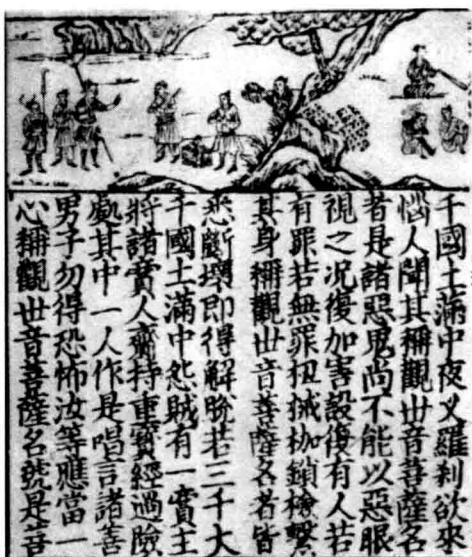 千國土滿中夜叉羅剎欲來
惱人聞其稱觀世音菩薩名
者是諸惡鬼尚不能以惡眼
視之况復加害設復有人若
有罪若無罪扭械枷鎖檢繫
其身稱觀世音菩薩名者皆
悉斷壞即得解脫若三千大
千國土滿中怨賊有一賣主
將諸賣人齎持重寶經過險
處其中一人作是唱言諸善
男子勿得恐怖汝等應當一
心稱觀世音菩薩名號是菩